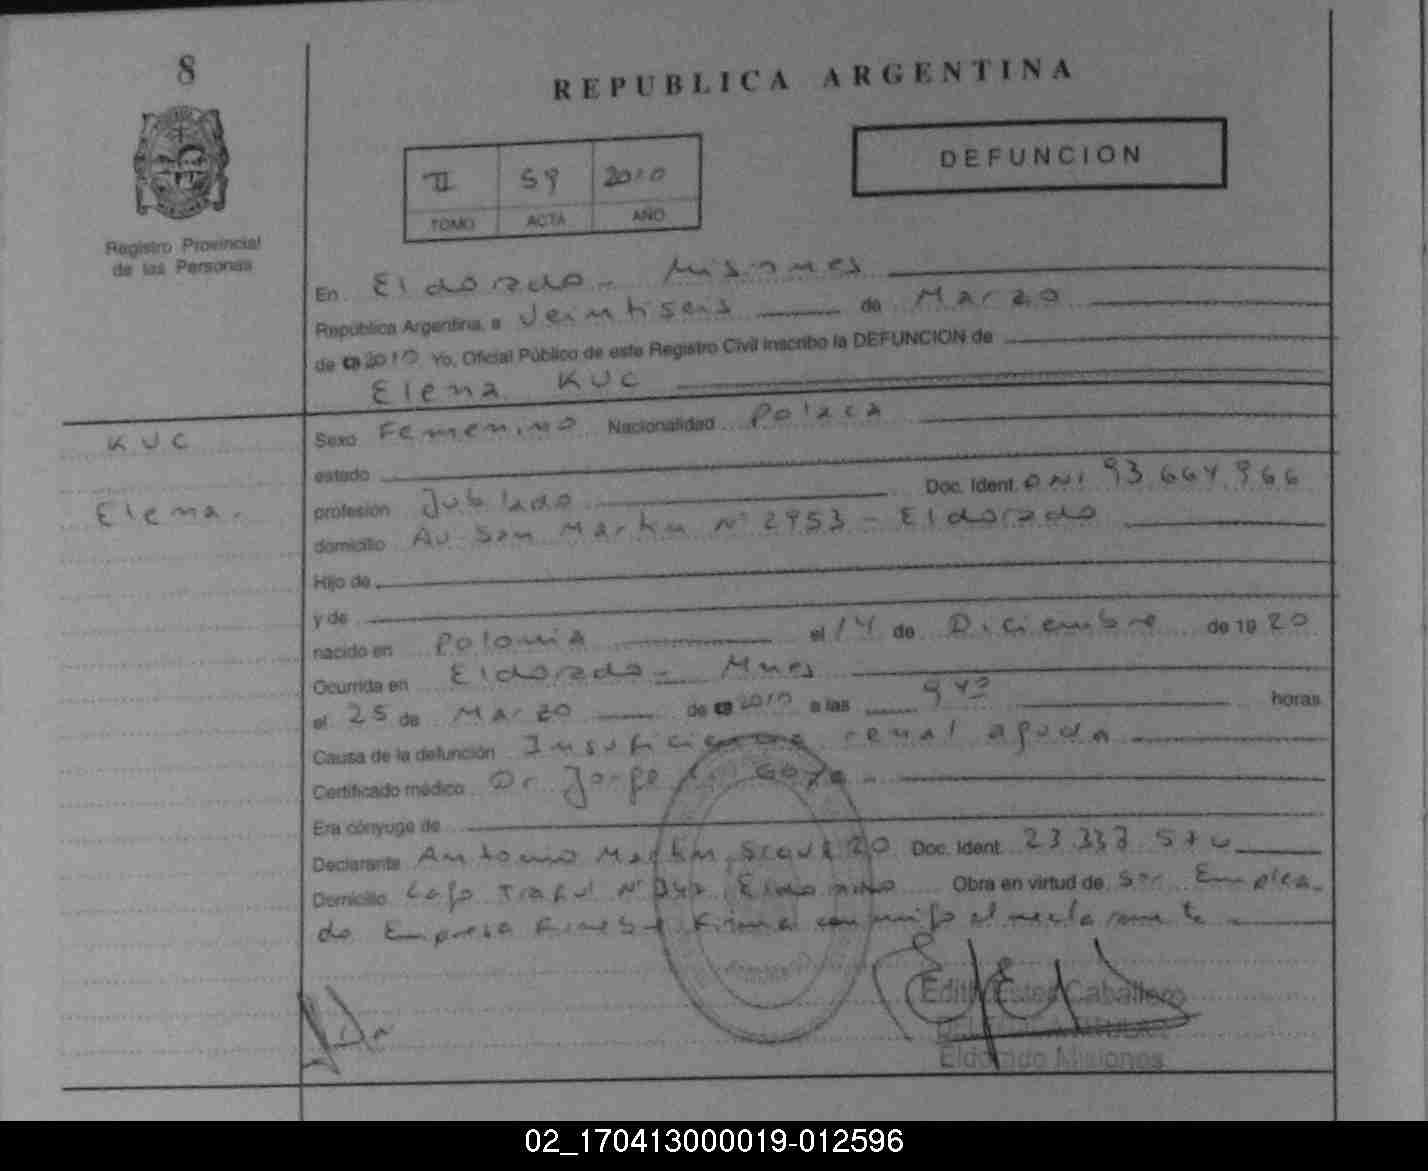 8
REPUBLICA ARGENTINA
DEFUNCION
II 59 2010
TOMO ACTA AÑO
Registro Provincial
de las Personas
En Eldorado - Misiones
República Argentina, a Veintiseis de Marzo
de 2010 Yo, Oficial Público de este Registro Civil inscribo la DEFUNCION de
Elena KUC
KUC
Elena.
Sexo Femenino Nacionalidad Polaca
estado
profesión Jubilado Doc. Ident. DNI 93.664.966
domicilio Av San Martin N° 2953 - Eldorado
Hijo de
y de
nacido en Polonia el 14 de Diciembre de 19 20
Ocurrida en Eldorado - Mnes
el 25 de Marzo de 2010 a las 9 horas
Causa de la defunción Insuficiencia renal aguda
Certificado médico Dr Jorge
Era cónyuge de
Declarante Antonio Martin Doc. Ident. 23.337
Domicilio Lago Traful N° Eldorado Obra en virtud de Ser Emplea-
do Empresa Firma conmigo el declarante
Edith Ester Caballero
Eldorado Misiones
02_170413000019-012596